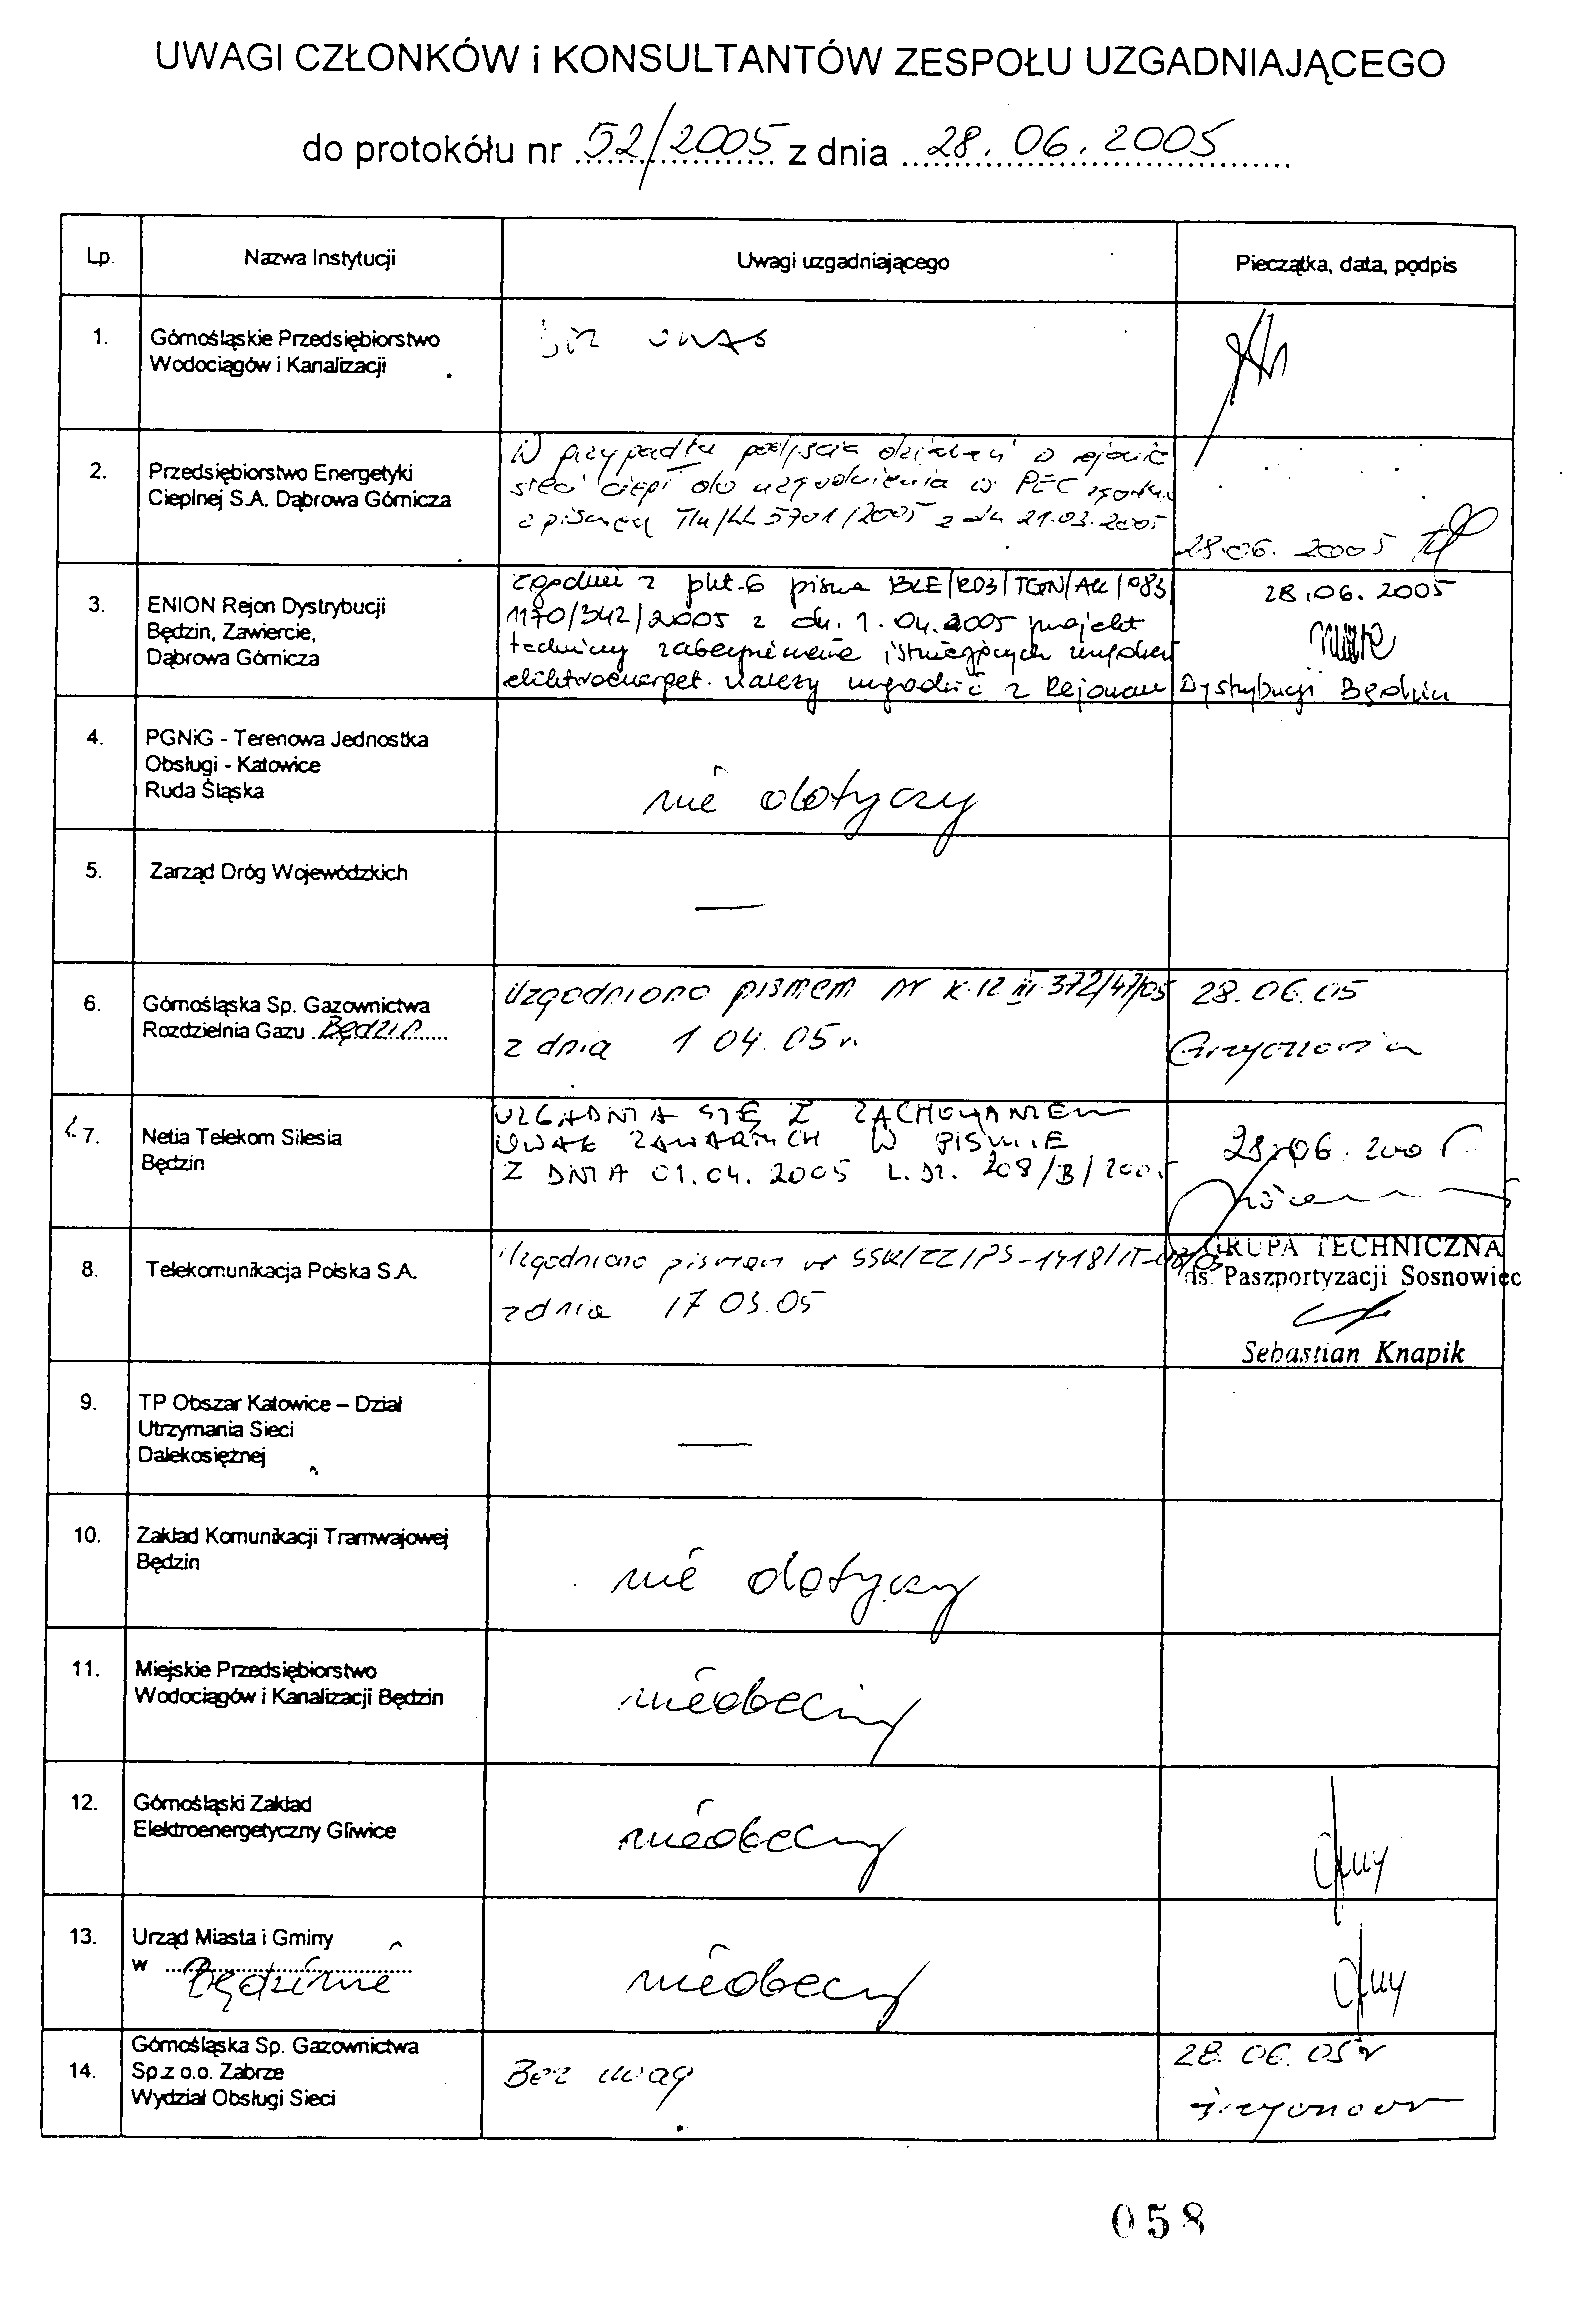 UWAGI CZŁONKÓW i KONSULTANTÓW ZESPOŁU UZGADNIAJĄCEGO
do protokółu nr 52/2005 z dnia 28.06.2005
Lp. Nazwa Instytucji Uwagi uzgadniającego Pieczątka, data, podpis
1. Górnośląskie Przedsiębiorstwo
Wodociągów i Kanalizacji
bez uwag
2. Przedsiębiorstwo Energetyki
Cieplnej S.A. Dąbrowa Górnicza
W przypadku podjęcia działań w rejonie
sieci ciepł. do uzgodnienia w PEC zgodn.
z pismem 5701/2005 z dn. 21.03.2005
28.06.2005
3. ENION Rejon Dystrybucji
Będzin, Zawiercie,
Dąbrowa Górnicza
zgodnie z pkt. 6 pisma
1170/342/2005 z dn. 1.04.2005 projekt
techniczny zabezpieczenia istniejących urządzeń
elektroenerget. należy uzgodnić z Rejonem Dystrybucji Będzin
28.06.2005
4. PGNiG - Terenowa Jednostka
Obsługi - Katowice
Ruda Śląska
nie dotyczy
5. Zarząd Dróg Wojewódzkich
—
6. Górnośląska Sp. Gazownictwa
Rozdzielnia Gazu Będzin
Uzgodniono pismem nr 372/47/05
z dnia 1 04.05 r.
28.06.05
7. Netia Telekom Silesia
Będzin
UZGADNIA SIĘ Z ZACHOWANIEM
UWAG ZAWARTYCH W PIŚMIE
Z DNIA 01.04.2005 L.DZ. 208/B/2005
28.06.2005
8. Telekomunikacja Polska S.A.
Uzgodniono pismem nr
z dnia 17 03.05
GRUPA TECHNICZNA
ds. Paszportyzacji Sosnowiec
Sebastian Knapik
9. TP Obszar Katowice – Dział
Utrzymania Sieci
Dalekosiężnej
—
10. Zakład Komunikacji Tramwajowej
Będzin
nie dotyczy
11. Miejskie Przedsiębiorstwo
Wodociągów i Kanalizacji Będzin
nieobecny
12. Górnośląski Zakład
Elektroenergetyczny Gliwice
nieobecny
13. Urząd Miasta i Gminy
w Będzinie
nieobecny
14. Górnośląska Sp. Gazownictwa
Sp.z o.o. Zabrze
Wydział Obsługi Sieci
Bez uwag
28.06.05 r
058